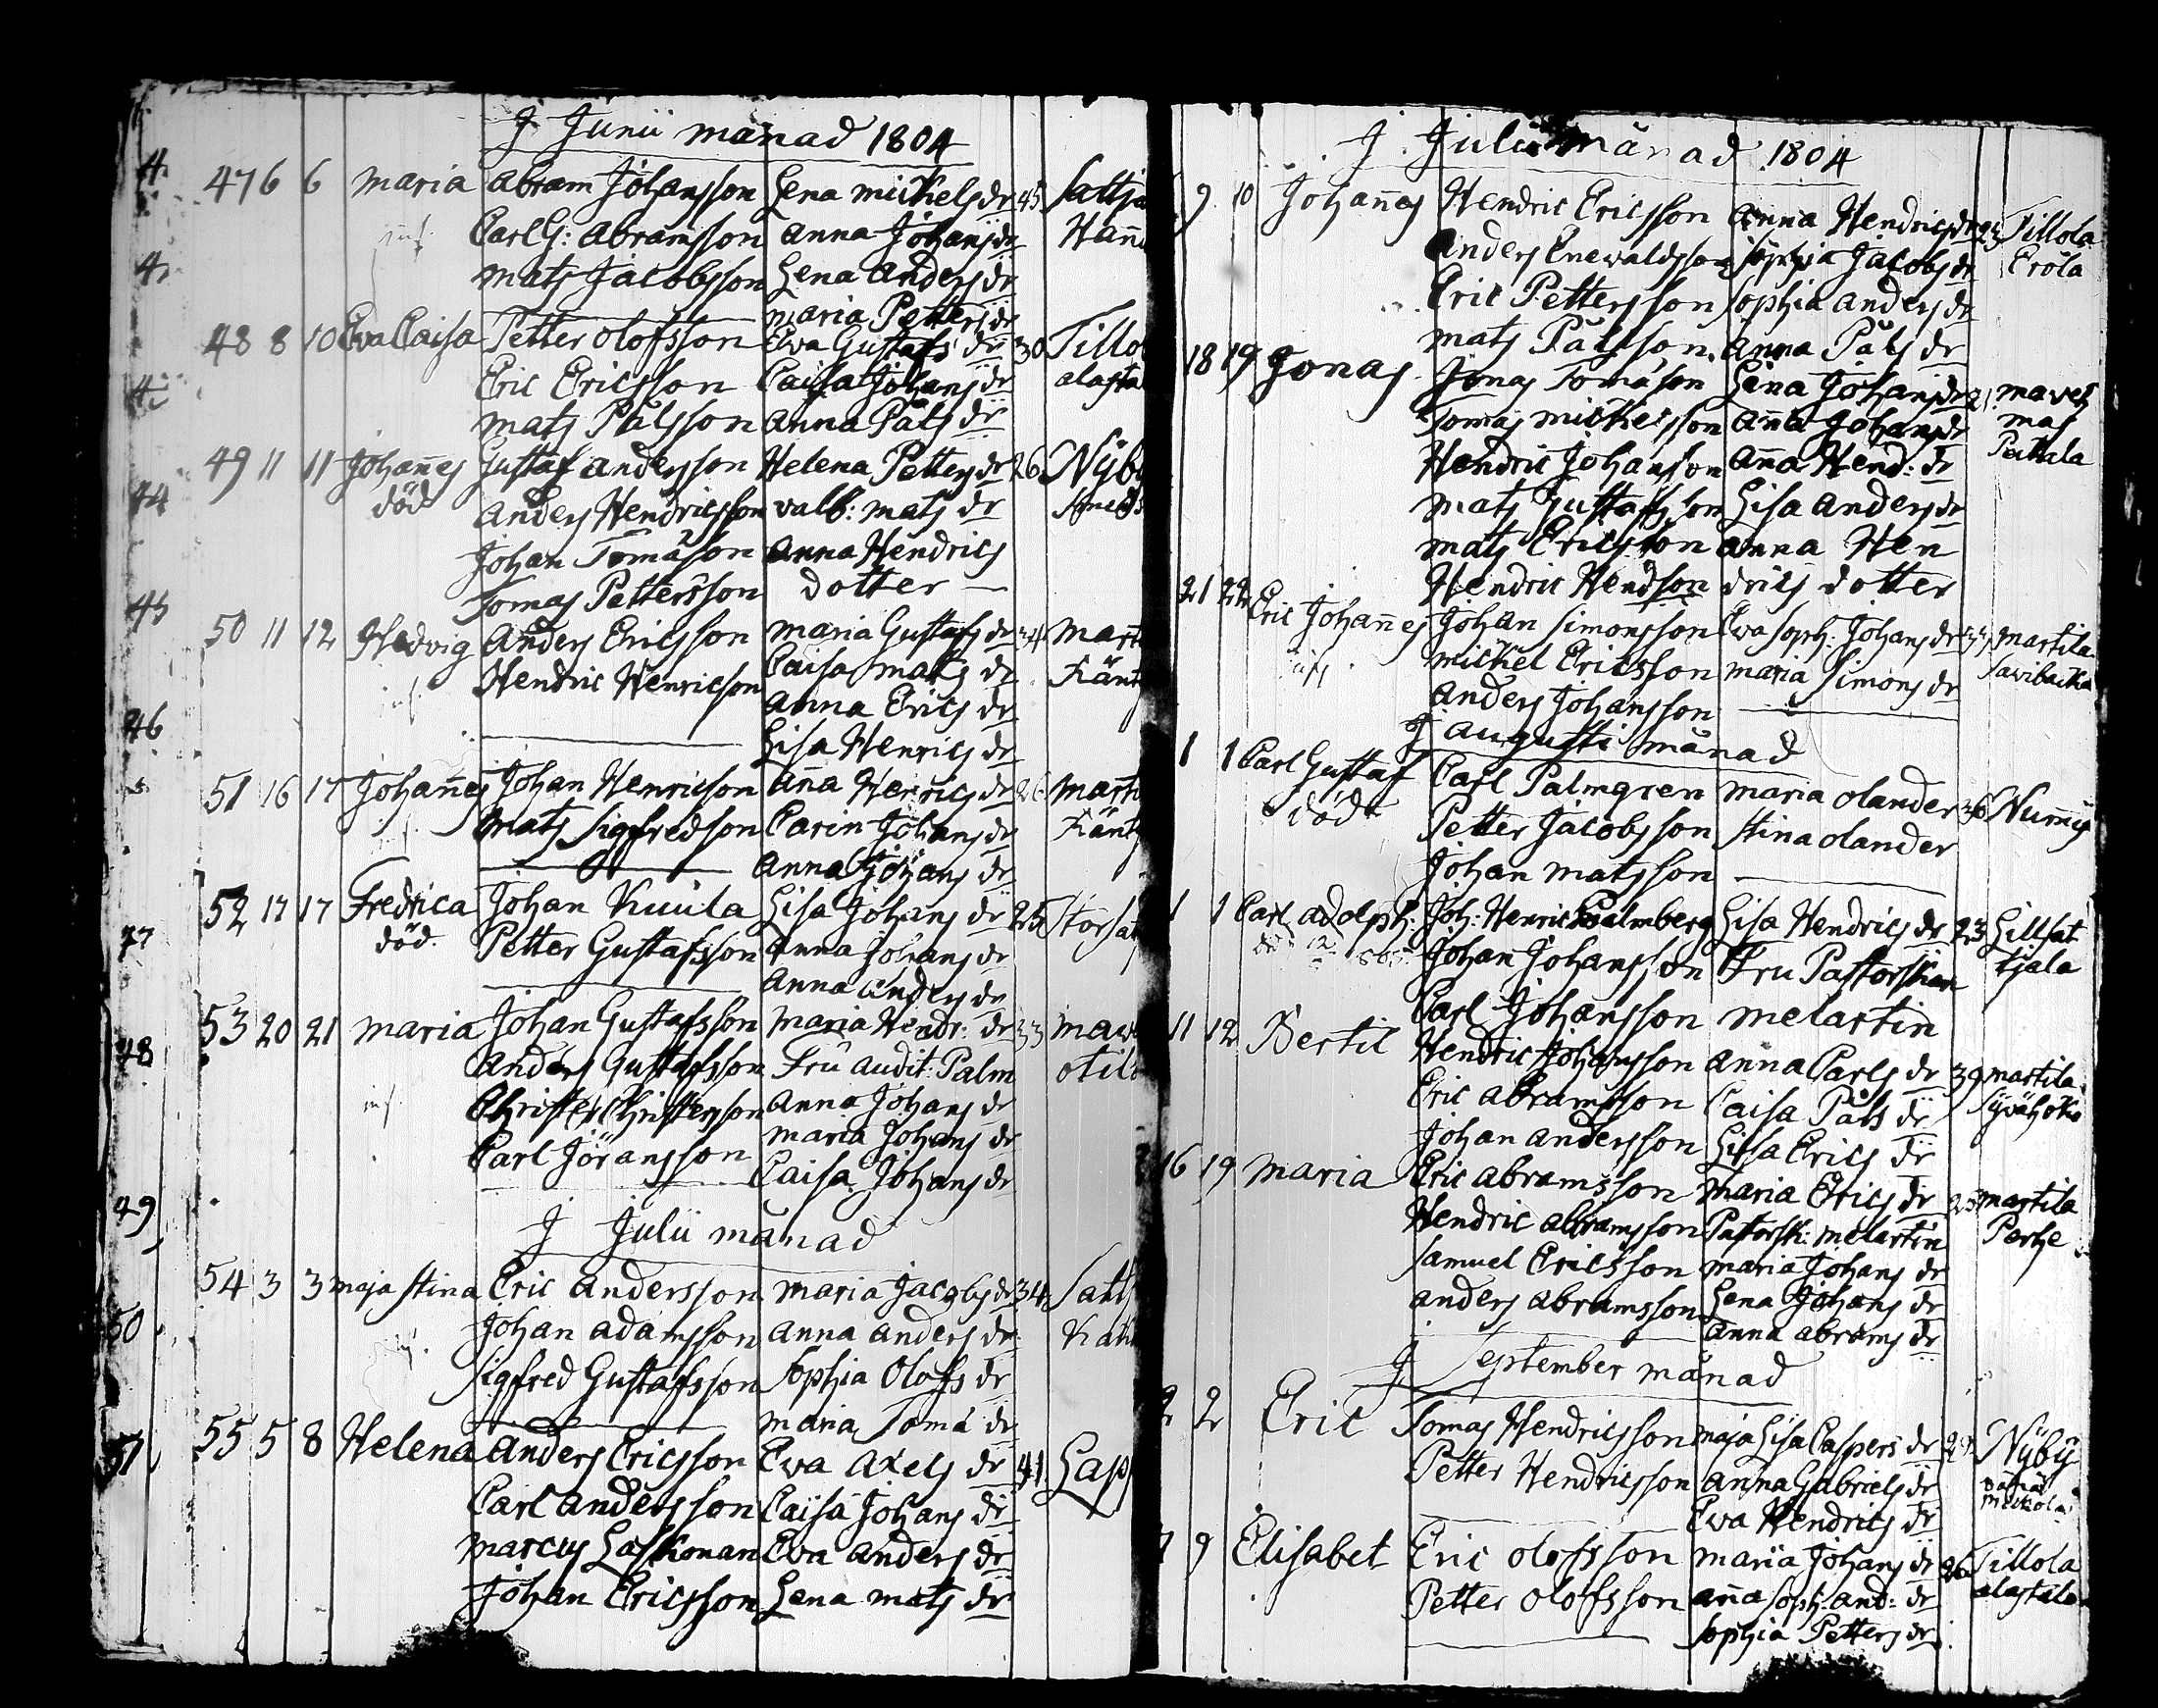 J Junii månad 1804
47 6 6 maria Abram Johansson Lena michels dr 45 Sattja
inf. Carl G: Abramsson Anna Johans dr Hann
mats Jacobsson Lena Anders dr
maria Petters dr
48 8 10 Eva Caisa Petter Olofsson Ewa Gustafs dr 30 Tillo
Eric Ericsson Caisa Johans dr alasta
mats Pålsson Anna Påls dr
49 11 11 Johañes Gustaf Andersson Helena Petters dr 26 Nÿb
död Anders Hendricsson valb: mats dr
Johan Tomasson Anna Hendrics
Tomas Pettersson dotter
50 11 12 Hedvig Anders Ericsson maria Gustafs dr 34 mart
inf. Hendric Henricson Caisa mats dr Känt
Anna Erics dr
Lisa Henrics dr
51 16 17 Johañes Johan Henricson Aña Henrics dr 26 mart
mats Sigfredson Carin Johans dr Känt
Anna Johans dr
52 17 17 Fredrica Johan Kuula Lisa Johans dr 25 Storsat
död. Petter Gustafsson Anna Johans dr
Anna Anders dr
53 20 21 maria Johan Gustafsson maria Hendr: dr 33 maw
Anders Gustafsson Fru Audit: Palm otil
inf. Christer Christersson Anna Johans dr
maria Johans dr
Carl Jöransson Caisa Johans dr
J Julii månad
54 3 3 maja Stina Eric Andersson maria Jacobs dr 34 Satt
Johan Adamsson Anna Anders dr
Sigfred Gustafsson Sophia Olofs dr
maria Toma dr
55 5 8 Helena Anders Ericsson Eva Axels dr 41 Lap
Carl Andersson Caisa Johans dr
marcus Laskonan Eva Anders dr
Johan Ericsson Lena mats dr
J Julii månad 1804
9 10 Johañes Hendric Ericsson Anna Hendrics dr Tillola
Anders Enewaldsson Sophia Jacobs dr Eröla
Eric Pettersson Sophia Anders dr
mats Pålsson Anna Påls dr
18 19 Jonas Jonas Tomasson Lena Johans dr
Tomas michelsson Aña Johans dr
Hendric Johansson Aña Hend: dr
mats Gustafsson Lisa Anders dr
mats Ericsson Anna Hen
Hendric Hendson drics dotter
21 22 Eric Johañes Johan Simonsson Ewa Soph: Johans dr martila
michel Ericsson maria Simons dr
Anders Johansson
J Augusti månad
1 1 Carl Gustaf Carl Palmgren maria Olander 36 Num̃is
död Petter Jacobsson Stina Olander
Johan matsson
1 1 Carl Adolph: Joh: Henric Palmberg Lisa Hendrics dr 23 Lillsat
Johan Johansson Fru Pastorskan tjala
Carl Johansson melartin
11 12 Bertil Hendric Johansson Anna Carls dr 39 martila
Eric Abramsson Caisa Påls dr
Johan Andersson Lisa Erics dr
16 19 maria Eric Abramsson maria Erics dr 25 martila
Hendric Abramsson Pastorsk: melartin Perhe
Samuel Ericsson maria Johans dr
Anders Abramsson Lena Johans dr
Anna Abrams dr
J September månad
2 2 Eric Tomas Hendricsson maja Lisa Caspers dr Nÿbÿ
Petter Hendricsson Anna Gabriels dr
Ewa Hendrics dr
7 9 Elisabet Eric Olofsson maria Johans dr 26 Tillola
Petter Olofsson aña Soph: And: dr alastalo
Sophia Petters dr